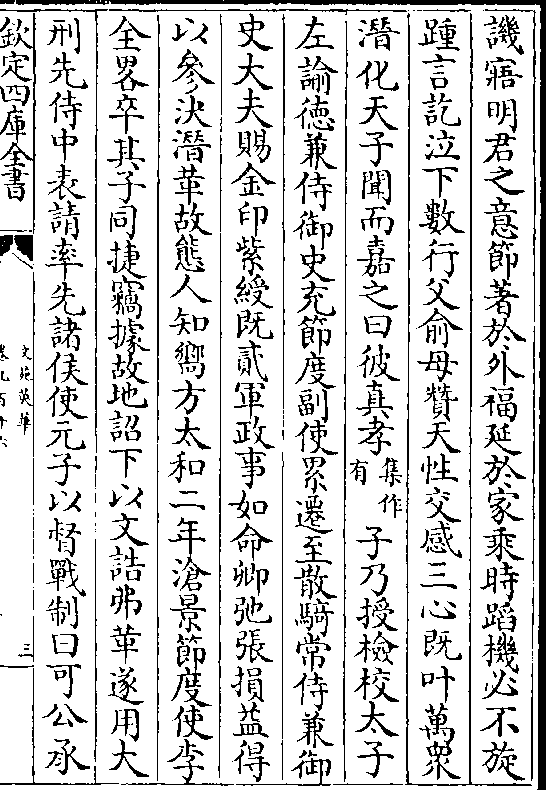 譏寤明君之意節著於外福延於家乗時蹈機必不旋
踵言訖泣下數行父俞母贊天性交感三心既叶萬衆
潛化天子聞而嘉之曰彼真孝集作有子乃授檢校太子
左諭徳兼侍御史充節度副使累遷至散騎常侍兼御
史大夫賜金印紫綬既貳軍政事如命卿弛張損益得
以參決潛革故態人知嚮方太和二年滄景節度使李
全畧卒其子同捷竊據故地詔下以文誥弗革遂用大
刑先侍中表請率先諸侯使元子以督戰制曰可公承
欽定四庫全書
文苑英華
三